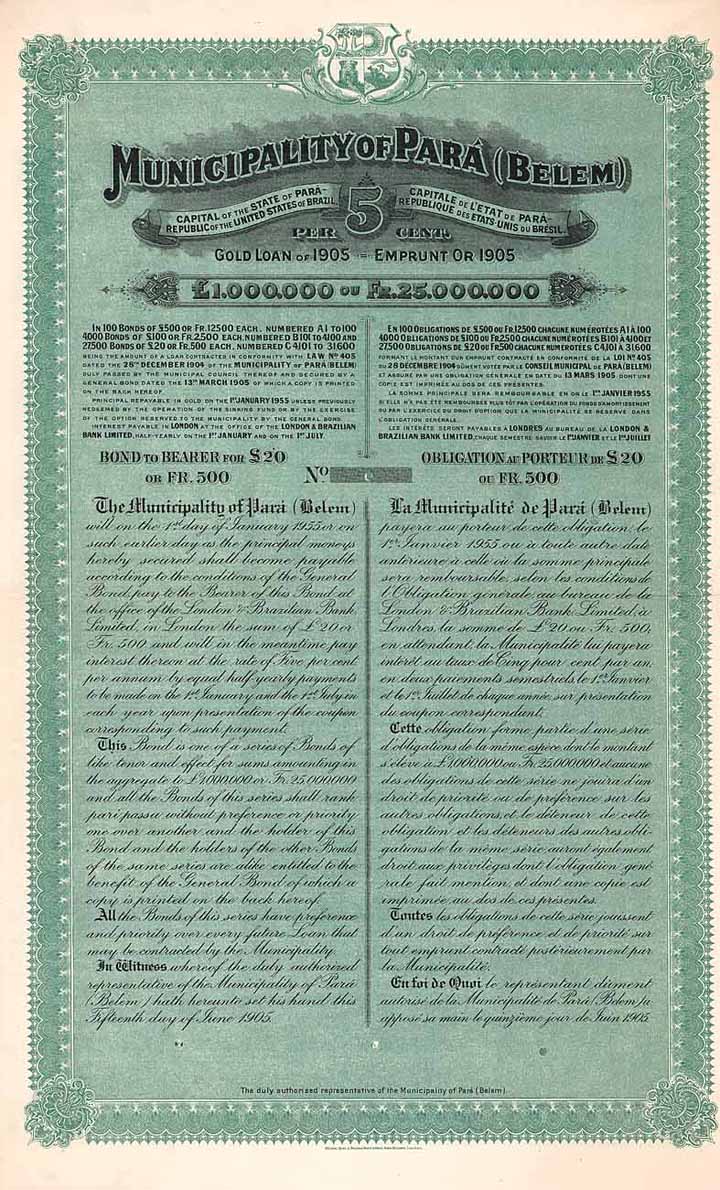 MUNICIPALITY OF PARÁ (BELEM)
CAPITAL OF THE STATE OF PARÁ-
REPUBLIC OF THE UNITED STATES OF BRAZIL
5
CAPITALE DE L'ETAT DE PARÁ-
REPUBLIQUE DES ETATS-UNIS DU BRESIL.
PER CENT.
GOLD LOAN OF 1905 = EMPRUNT OR 1905
£1.000.000 OU FR.25.000.000
IN 100 BONDS OF £500 OR FR.12500 EACH. NUMBERED A1 TO 100
4000 BONDS OF £100 OR FR.2,500 EACH, NUMBERED B101 TO 4,100 AND
27,500 BONDS OF £20 OR FR.500 EACH. NUMBERED C4,101 TO 31600
BEING THE AMOUNT OF A LOAN CONTRACTED IN CONFORMITY WITH LAW Nº 405
DATED THE 28TH DECEMBER 1904 OF THE MUNICIPALITY OF PARÁ (BELEM)
DULY PASSED BY THE MUNICIPAL COUNCIL THEREOF AND SECURED BY A
GENERAL BOND DATED THE 13TH MARCH 1905 OF WHICH A COPY IS PRINTED
ON THE BACK HEREOF.
PRINCIPAL REPAYABLE IN GOLD ON THE 1ST JANUARY 1955 UNLESS PREVIOUSLY
REDEEMED BY THE OPERATION OF THE SINKING FUND OR BY THE EXERCISE
OF THE OPTION RESERVED TO THE MUNICIPALITY BY THE GENERAL BOND.
INTEREST PAYABLE IN LONDON AT THE OFFICE OF THE LONDON & BRAZILIAN
BANK LIMITED, HALF-YEARLY ON THE 1ST JANUARY AND ON THE 1ST JULY.
EN 100 OBLIGATIONS DE £500 OU FR.12,500 CHACUNE NUMÉROTÉES A1 À 100
4.000 OBLIGATIONS DE £100 OU FR.2,500 CHACUNE NUMÉROTÉES B101 À 4,100 ET
27500 OBLIGATIONS DE £20 OU FR.500 CHACUNE NUMÉROTÉES C4,101 À 31600
FORMANT LE MONTANT D'UN EMPRUNT CONTRACTÉ EN CONFORMITÉ DE LA LOI Nº 405
DU 28 DECEMBRE 1904 DÛMENT VOTÉE PAR LE CONSEIL MUNICIPAL DE PARÁ (BELEM)
ET ASSURÉ PAR UNE OBLIGATION GÉNÉRALE EN DATE DU 13 MARS 1905 DONT UNE
COPIE EST IMPRIMÉE AU DOS DE CES PRÉSENTES.
LA SOMME PRINCIPALE SERA REMBOURSABLE EN OR LE 1ER JANVIER 1955
SI ELLE N'A PAS ÉTÉ REMBOURSÉE PLUS TÔT PAR L'OPÉRATION DU FONDS D'AMORTISSEMENT
OU PAR L'EXERCICE DU DROIT D'OPTION QUE LA MUNICIPALITÉ SE RÉSERVE DANS
L'OBLIGATION GÉNÉRALE.
LES INTÉRÊTS SERONT PAYABLES À LONDRES AU BUREAU DE LA LONDON &
BRAZILIAN BANK LIMITED, CHAQUE SEMESTRE SAVOIR LE 1ER JANVIER ET LE 1ER JUILLET
BOND TO BEARER FOR £20
OR FR. 500
Nº C
OBLIGATION AU PORTEUR DE £20
OU FR. 500
The Municipality of Pará (Belem)
will on the 1st day of January 1955 or on
such earlier day as the principal moneys
hereby secured shall become payable
according to the conditions of the General
Bond, pay to the Bearer of this Bond at
the office of the London & Brazilian Bank
Limited, in London the sum of £20 or
Fr. 500 and will in the meantime pay
interest thereon at the rate of Five per cent
per annum by equal half yearly payments
to be made on the 1st January and the 1st July in
each year upon presentation of the coupon
corresponding to such payment.
This Bond is one of a series of Bonds of
like tenor and effect for sums amounting in
the aggregate to £1,000,000 or Fr. 25,000,000
and all the Bonds of this series shall rank
pari passu without preference or priority
one over another and the holder of this
Bond and the holders of the other Bonds
of the same series are alike entitled to the
benefit of the General Bond of which a
copy is printed on the back hereof.
All the Bonds of this series have preference
and priority over every future Loan that
may be contracted by the Municipality.
In Witness whereof the duly authorized
representative of the Municipality of Pará
(Belem) hath hereunto set his hand this
Fifteenth day of June 1905.
La Municipalité de Pará (Belem)
payera au porteur de cette obligation le
1er Janvier 1955 ou à toute autre date
antérieure à celle où la somme principale
sera remboursable, selon les conditions de
l'Obligation générale au bureau de la
London & Brazilian Bank Limited, à
Londres, la somme de £20 ou Fr. 500,
en attendant, la Municipalité lui payera
intérêt au taux de Cinq pour cent par an,
en deux paiements semestriels, le 1er Janvier
et le 1er Juillet de chaque année, sur présentation
du coupon correspondant.
Cette obligation forme partie d'une série
d'obligations de la même espèce dont le montant
s'élève à £1,000,000 ou Fr. 25,000,000 et aucune
des obligations de cette série ne jouira d'un
droit de priorité ou de préférence sur les
autres obligations, et le déteneur de cette
obligation et les déteneurs des autres obli-
gations de la même série auront également
droit aux privilèges dont l'obligation géné-
rale fait mention et dont une copie est
imprimée au dos de ces présentes.
Toutes les obligations de cette série jouissent
d'un droit de préférence et de priorité sur
tout emprunt contracté postérieurement par
la Municipalité.
En foi de Quoi le représentant dûment
autorisé de la Municipalité de Pará (Belem) a
apposé sa main le quinzième jour de Juin 1905.
The duly authorised representative of the Municipality of Pará (Belem).